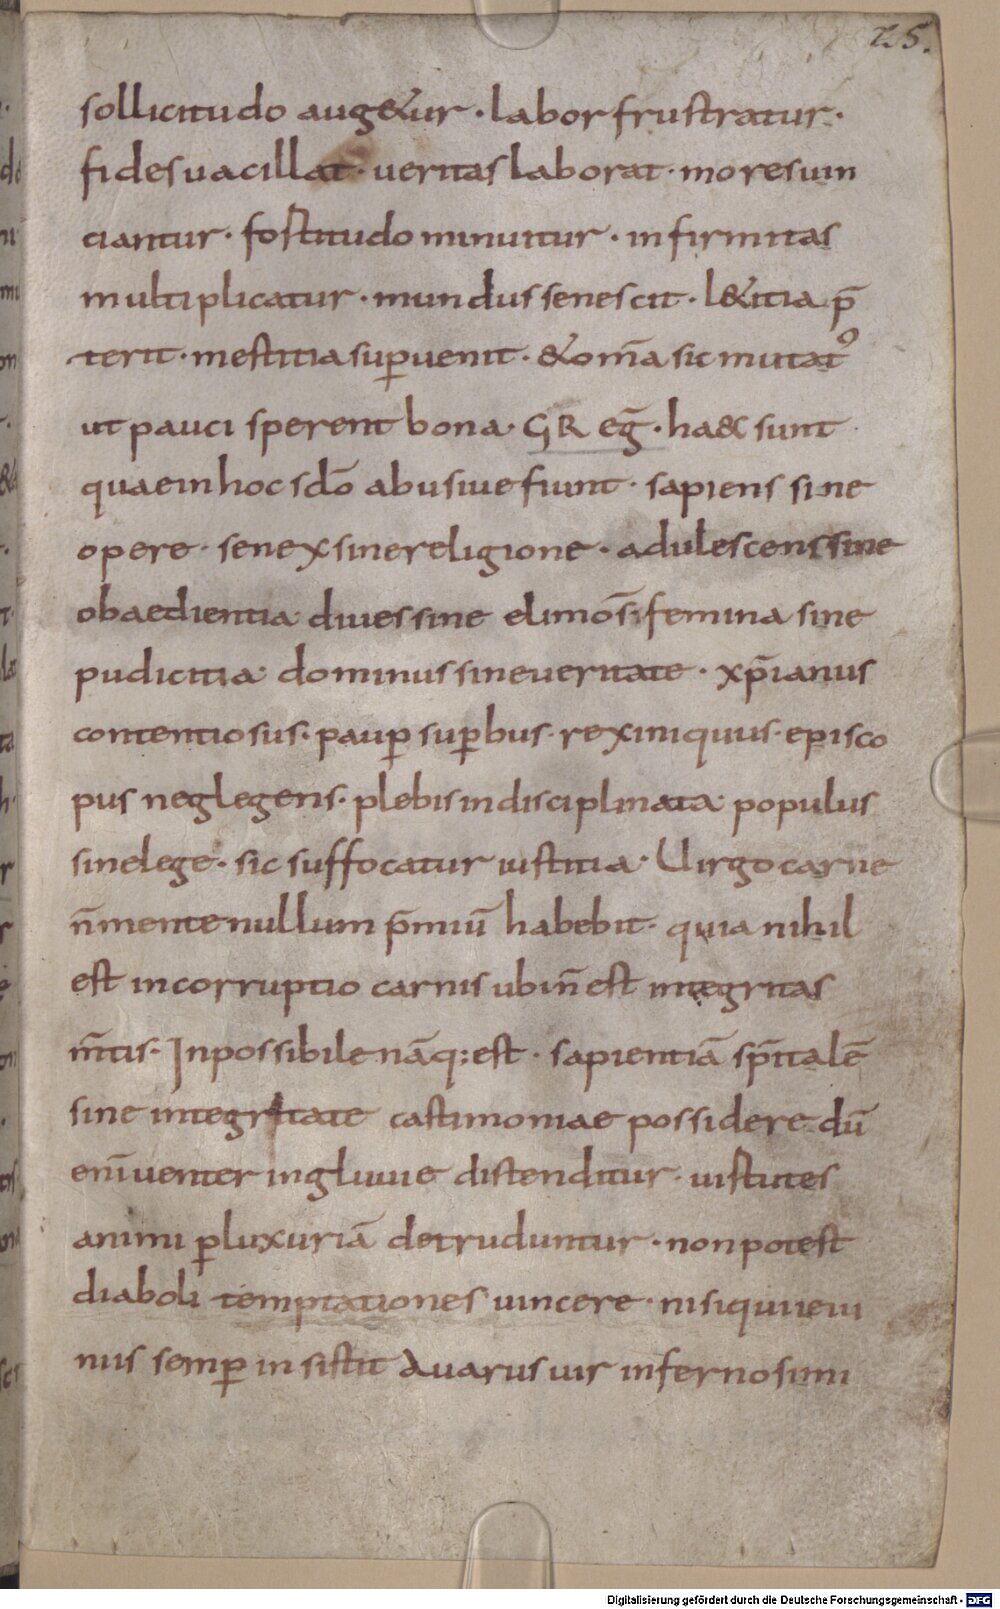 25.
sollicitudo aug&ur · labor frustratur ·
fides uacillat · ueritas laborat · mores uin
ciantur · fortitudo minuitur · infirmitas
multiplicatur · mundus senescit · l&itia p̄
terit · mestitia suꝑuenit · & om̄a sic mutatꝰ
ut pauci sperent bona · GREḠ · ha&c sunt
quae in hoc sclō abusiue fiunt · sapiens sine
opere · senex sine religione · adulescens sine
obaedientia · diues sine elimos̄ · femina sine
pudicitia · dominus sine ueritate · xp̄ianus
contentiosus · pauꝑ suꝑbus · rex iniquus · episco
pus neglegens · plebis indisciplinata · populus
sine lege · sic suffocatur iustitia · Uirgo carne
n̄ mente nullum p̄miū habebit · quia nihil
est incorruptio carnis ubi n̄ est integritas
m̄tis · Inpossibile nāq; est · sapientiā sp̄italē
sine integritate castimoniae possidere dū
eni̅ uenter ingluuie distenditur · uirtutes
animi ꝑ luxuriā detruduntur · non potest
diaboli temptationes uincere · nisi qui ieiu
niis semꝑ insistit Auarus uir inferno simi
Digitalisierung gefördert durch die Deutsche Forschungsgemeinschaft - DFG